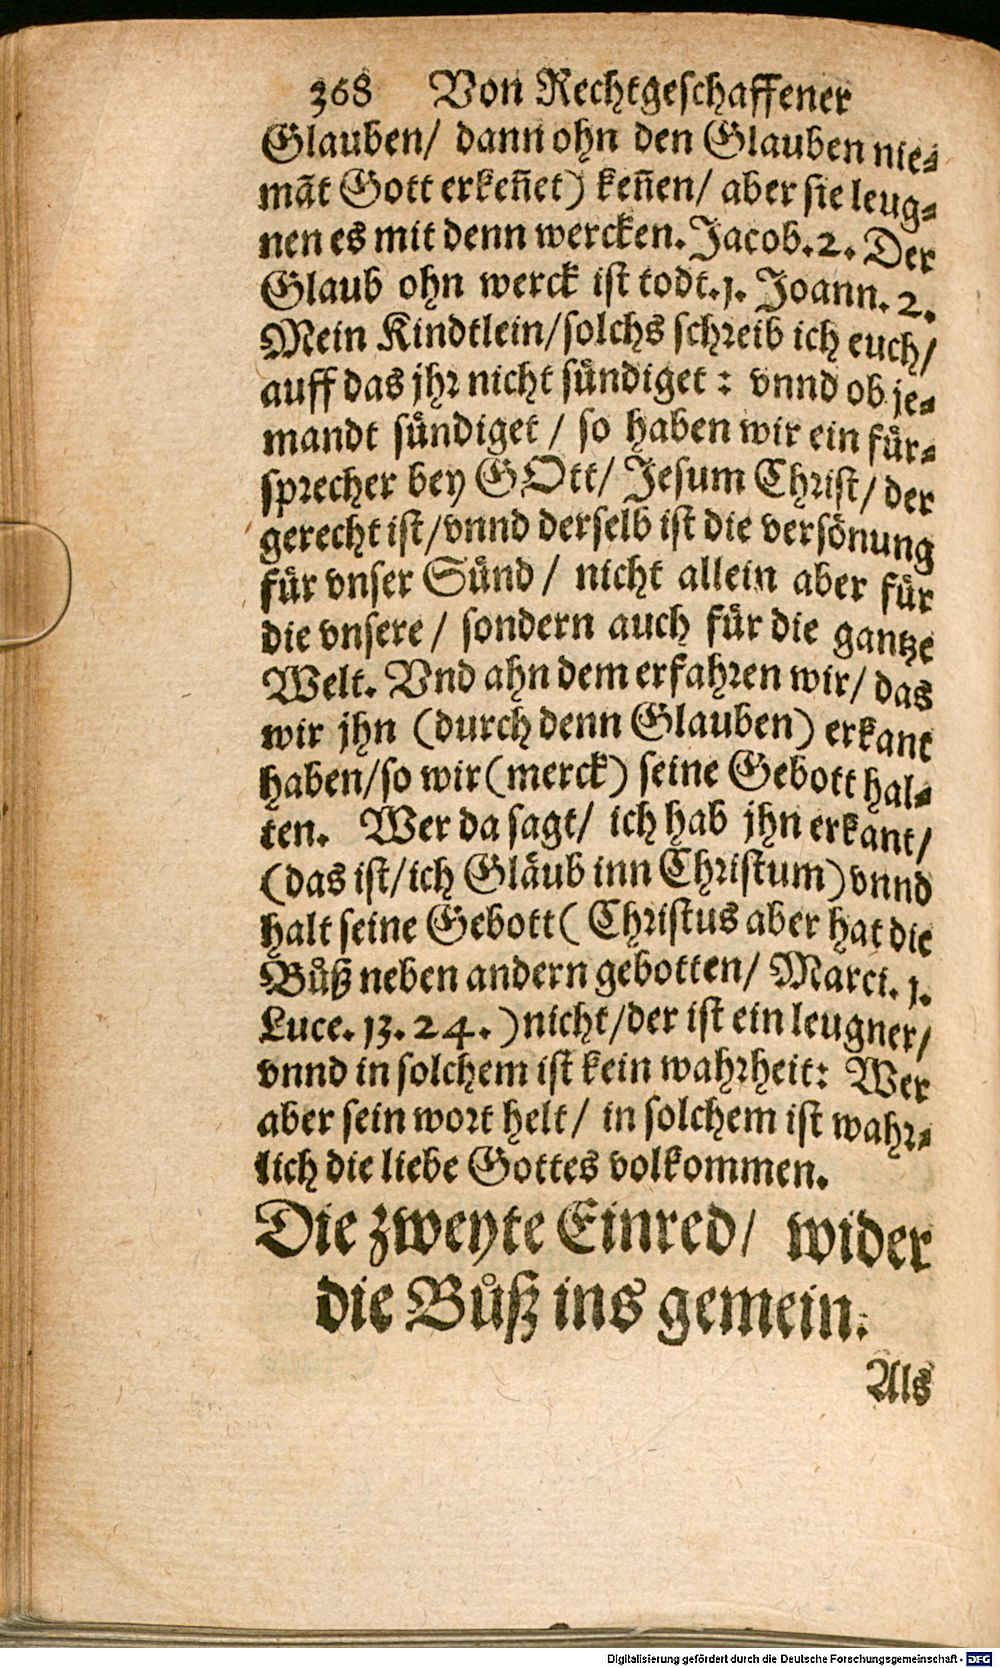 368 Von Rechtgeschaffener
Glauben/ dann ohn den Glauben nie⸗
mãt Gott erkeñet) keñen/ aber sie leug⸗
nen es mit denn wercken. Jacob. 2. Der
Glaub ohn werck ist todt. 1. Joann. 2.
Mein Kindtlein/ solchs schreib ich euch/
auff das jhr nicht sündiget: vnnd ob je⸗
mandt sündiget/ so haben wir ein für⸗
sprecher bey GOtt/ Jesum Christ/ der
gerecht ist/ vnnd derselb ist die versönung
für vnser Sünd/ nicht allein aber für
die vnsere/ sondern auch für die gantze
Welt. Vnd ahn dem erfahren wir/ das
wir jhn (durch denn Glauben) erkant
haben/ so wir (merck) seine Gebott hal⸗
ten. Wer da sagt/ ich hab jhn erkant/
(das ist/ ich Gläub inn Christum) vnnd
halt seine Gebott (Christus aber hat die
Bůß neben andern gebotten/ Marci. 1.
Luce. 13. 24.) nicht/ der ist ein leugner/
vnnd in solchem ist kein wahrheit: Wer
aber sein wort helt/ in solchem ist wahr⸗
lich die liebe Gottes volkommen.
Die zweyte Einred/ wider
die Bůß ins gemein.
Als
Digitalisierung gefördert durch die Deutsche Forschungsgemeinschaft - DFG